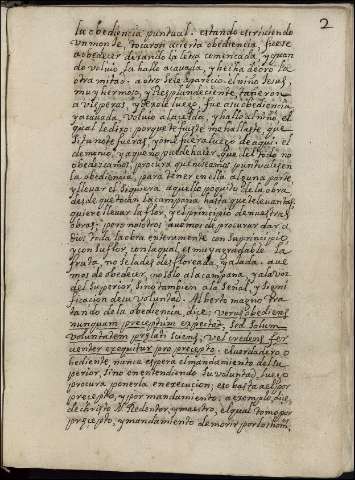 2
la obediencia puntual. estando escriuiendo
un monde, tocaron a cierta obediencia, fuese
a obedecer dexando la letra començada, y quan
do voluio la hallo acauada, y hecha de oro la
otra mitad. a otro se le aparecio el niño Jesus,
muy hermoso, y Resplandeciente, tañeron
a visperas, y dexole luego, fue a su obediencia
y acauada, voluio a la çelda, y hallo al niño, el
qual le dixo, porque te fuiste me hallaste, que
si tu no te fueras, yo me fuera luego de aqui. el
demonio, ya que no puede hacer, que del todo no
obedezcamos, procura que no seamos puntuales en
la obediencia, para tener en ella alguna parte
y lleuar el siquiera aquello poquito de la obra,
desde que tocan la campana hasta que te leuantas,
quiere lleuar la flor, y el principio de nuestras
obras, pero nosotros auemos de procurar dar a
Dios toda la obra enteramente con su principio,
y con su flor, con lo qual es muy agradable la
fruta, no se la des desfloreada, y alada. aue
mos de obedecer, no solo a la campana, y a la voz
del superior, sino tambien a la señal, y signi
ficacion de su voluntad. Alberto magno tra
tando de la obediencia, dice, verus obediens
nunquam preceptum expectat, sed solum
voluntatem prelati sciens, vel credens fer
uenter exequitur pro precepto. el verdadero o
bediente, nunca espera el mandamiento del su
perior, sino en entendiendo su voluntad, luego
procura ponerla en execucion, eso basta a el por
precepto, y por mandamiento, a exemplo
de christo N. Redentor, y maestro, el qual tomo por
precepto, y mandamiento de morir por los hom